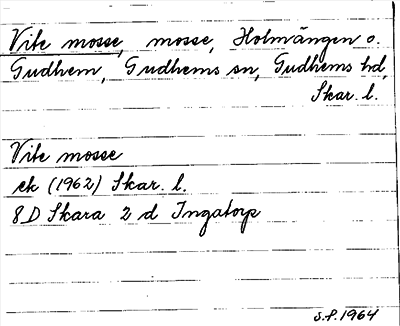 Vite mosse, mosse, Holmängen o.
Gudhem, Gudhems sn, Gudhems hd,
Skar. l.
Vite mosse
ek (1962) Skar. l.
8D Skara 2 d Ingatorp
S.F. 1964